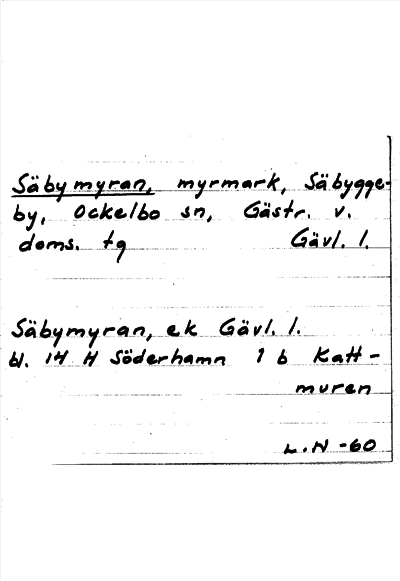 Säbymyran, myrmark, Säbygge-
by, Ockelbo sn, Gästr. v.
doms. tg Gävl. l.
Säbymyran, ek Gävl. l.
bl. 14 H Söderhamn 1 b Katt-
muren
L.N -60